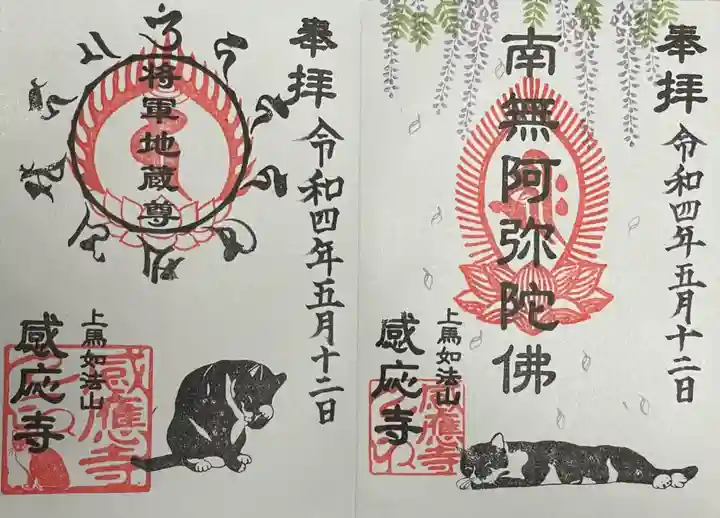 奉拝
令和四年五月十二日
将軍地蔵尊
上馬如法山
感応寺
感應寺
奉拝
令和四年五月十二日
南無阿弥陀佛
上馬如法山
感応寺
感應寺